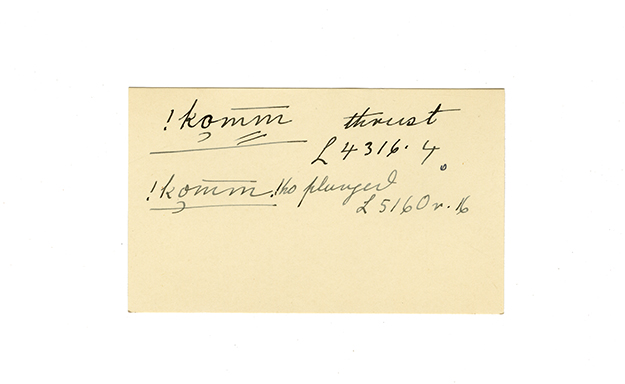 !kọm̅m̅ thrust
L 4316. 4
!kọm̅m̅ !ho plunged
L 5160 v. 16